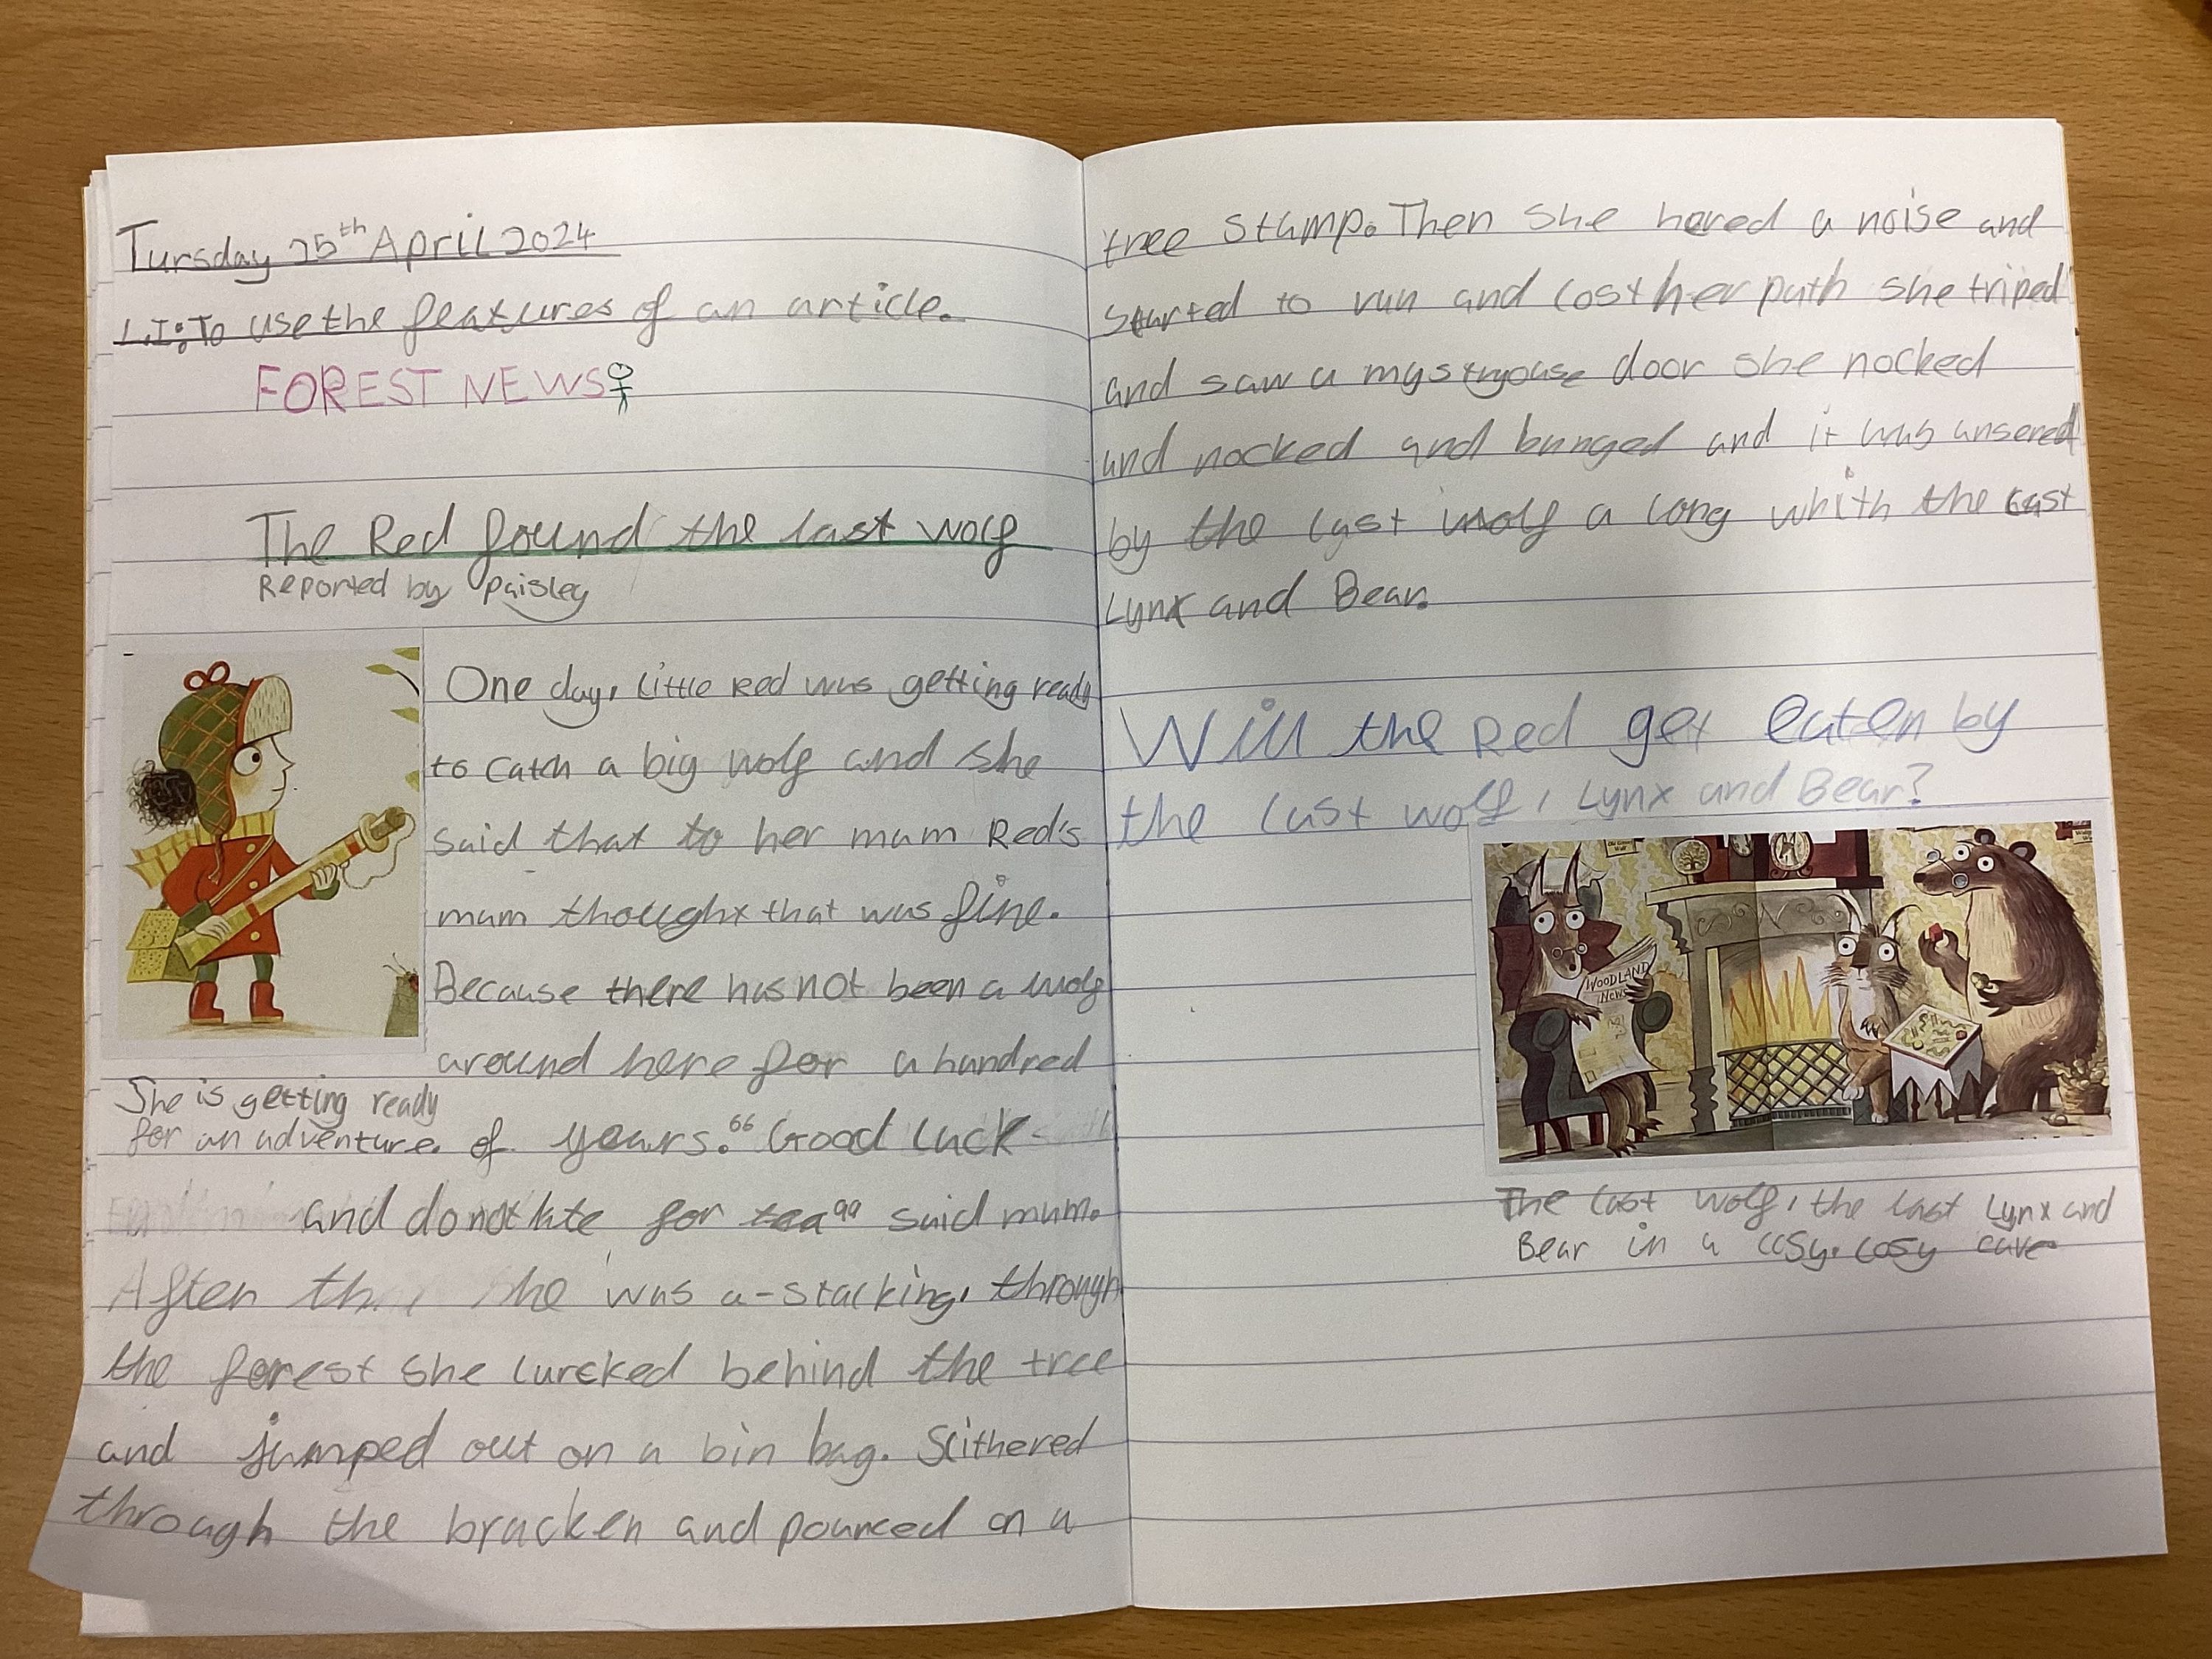 Tursday 25th April 2024
L.I: To use the features of an article.
FOREST NEWS
The Red found the last wolf
Reported by Paisley
One day, little Red was getting ready
to catch a big wolf and she
said that to her mum Red's
mum thought that was fine.
Because there has not been a wolf
around here for a hundred
She is getting ready
for an adventure.
of years. "Good luck
and do not late for tea" said mum.
After she was a-stacking, through
the forest she lurcked behind the tree
and jumped out on a bin bag. Slithered
through the bracken and pounced on a
tree stump. Then she hered a noise and
started to run and lost her path she triped
and saw a mystryouse door she nocked
and nocked and banged and it was ansered
by the last wolf a long whith the last
Lynx and Bear.
Will the Red get eaten by
the last wolf, Lynx and Bear?
WOODLAND
News
The last wolf, the last Lynx and
Bear in a cosy. cosy cave